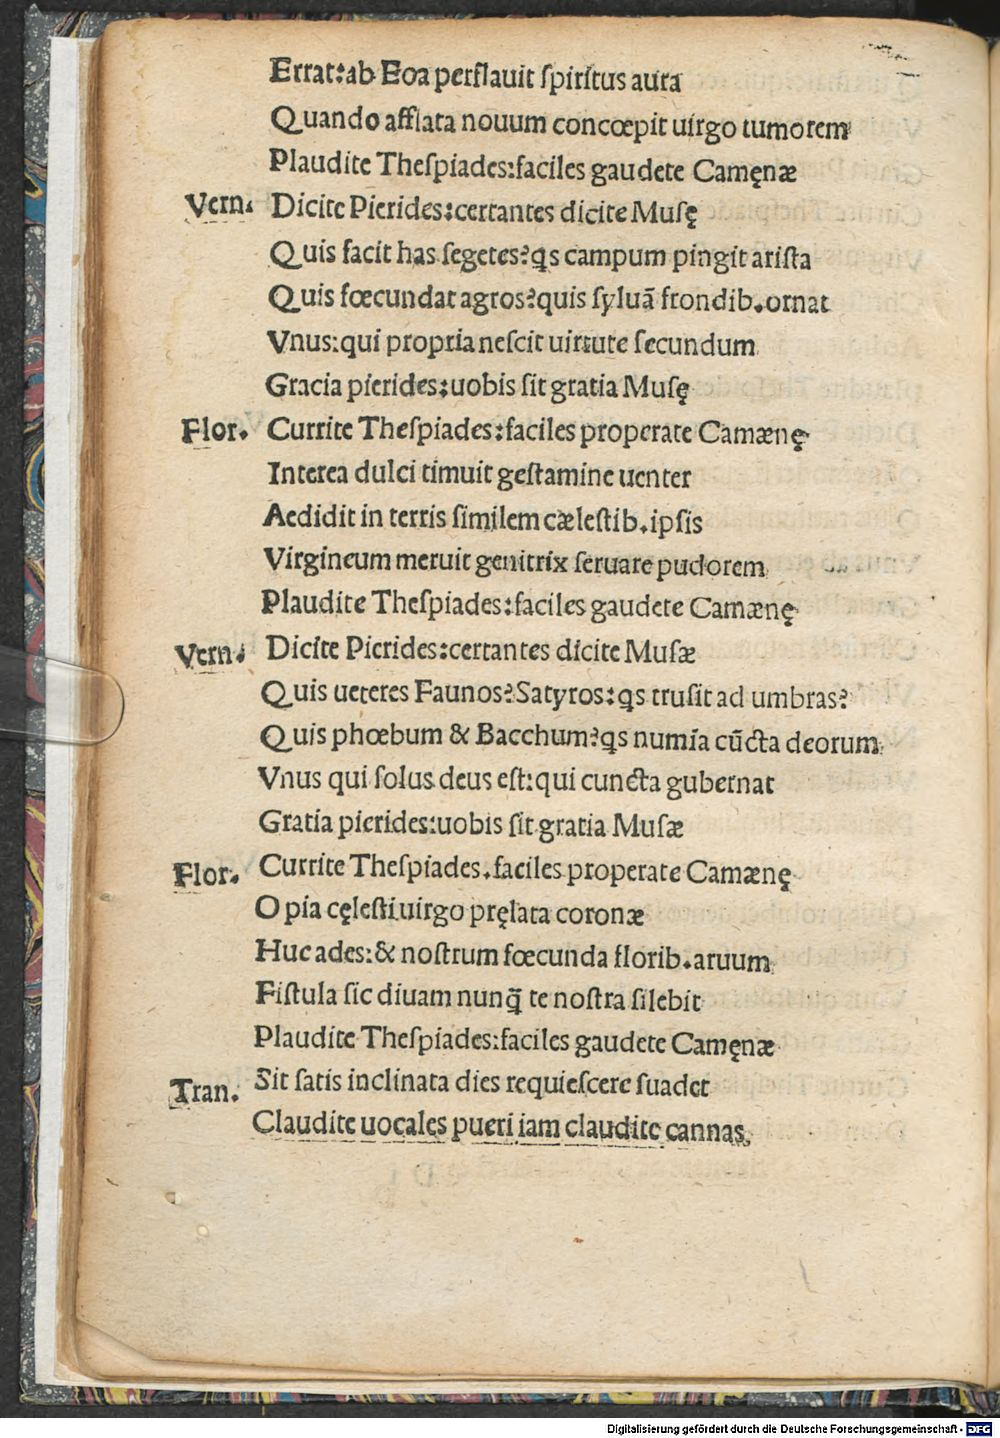 Errat:ab Eoa perflauit ſpiritus aura
Quando afflata nouum concœpit uirgo tumorem
Plaudite Theſpiades:faciles gaudete Camęnæ
Vern. Dicite Pierides:certantes dicite Muſę
Quis facit has ſegetes?qs campum pingit ariſta
Quis fœcundat agros?quis ſyluã frondib.ornat
Vnus:qui propria neſcit uirtute ſecundum
Gracia pierides:uobis ſit gratia Muſę
Flor. Currite Theſpiades:faciles properate Camænę
Interea dulci timuit geſtamine uenter
Aedidit in terris ſimilem cæleſtib.ipſis
Virgineum meruit genitrix ſeruare pudorem
Plaudite Theſpiades:faciles gaudete Camænę
Vern. Dicite Pierides:certantes dicite Muſæ
Quis ueteres Faunos?Satyros:qs truſit ad umbras?
Quis phœbum & Bacchum?qs numía cũcta deorum
Vnus qui ſolus deus eſt:qui cuncta gubernat
Gratia pierides:uobis ſit gratia Muſæ
Flor. Currite Theſpiades.faciles properate Camænę
O pia cęleſti uirgo pręlata coronæ
Huc ades:& noſtrum fœcunda florib.aruum
Fiſtula ſic diuam nunq̃ te noſtra ſilebit
Plaudite Theſpiades:faciles gaudete Camęnæ
Tran. Sit ſatis inclinata dies requieſcere ſuadet
Claudite uocales pueri iam claudite cannas.
Digitalisierung gefördert durch die Deutsche Forschungsgemeinschaft - DFG